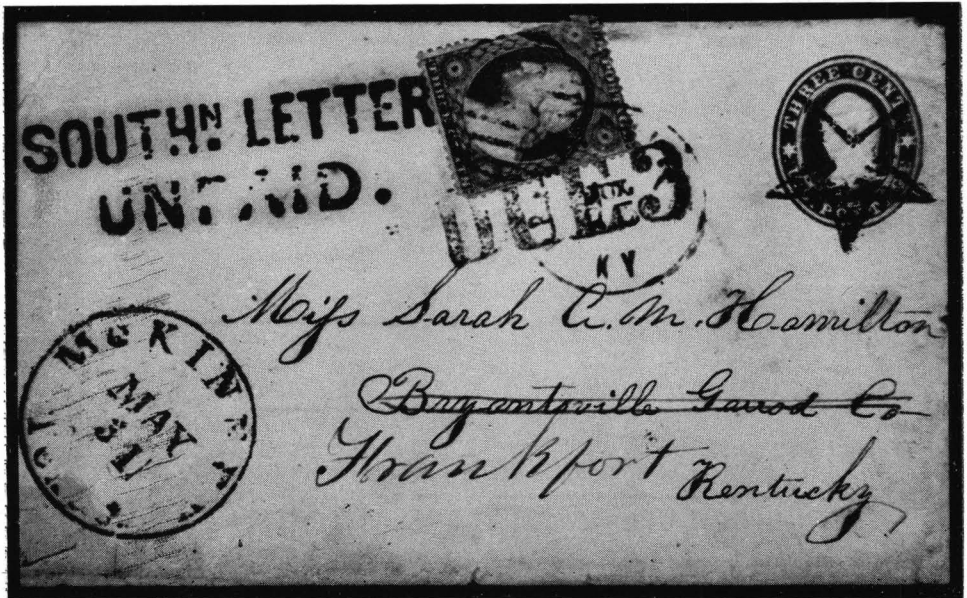 SOUTHN. LETTER
UNPAID.
THREE CENTS
3
KY
McKINNEY
MAY
31
Miss Sarah A. M. Hamilton
Bryantsville Garrod Co
Frankfort
Kentucky